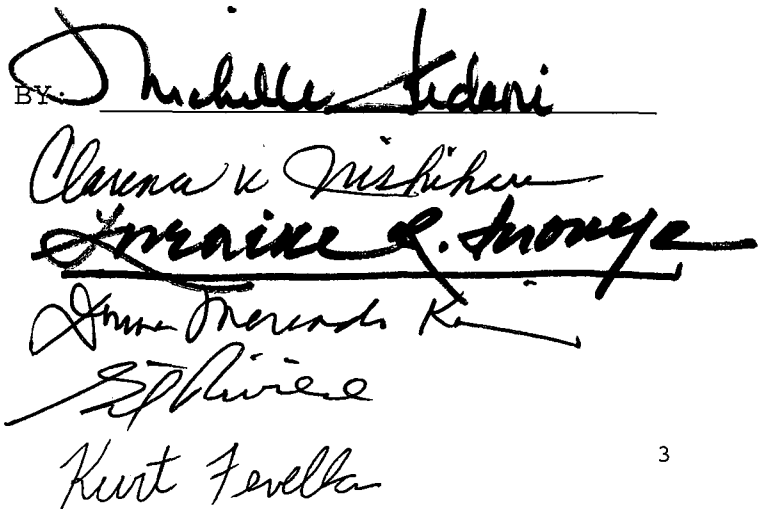 BY: Michelle Kidani
Clarence K Nishihara
Lorraine R. Inouye
Donna Mercado Kim
Gil Riviere
Kurt Fevella
3